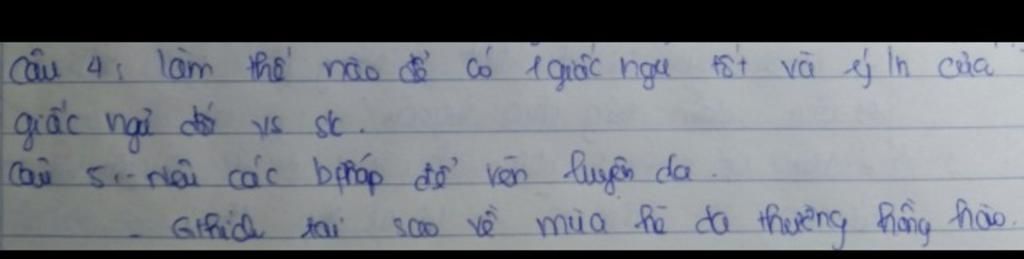 Câu 4: làm thế nào để có 1 giấc ngủ tốt và ý ln của
giấc ngủ đó vs sk.
Câu 5: - Nêu các bpháp để rèn luyện da.
- Gthích tại sao về mùa hè da thường hồng hào.